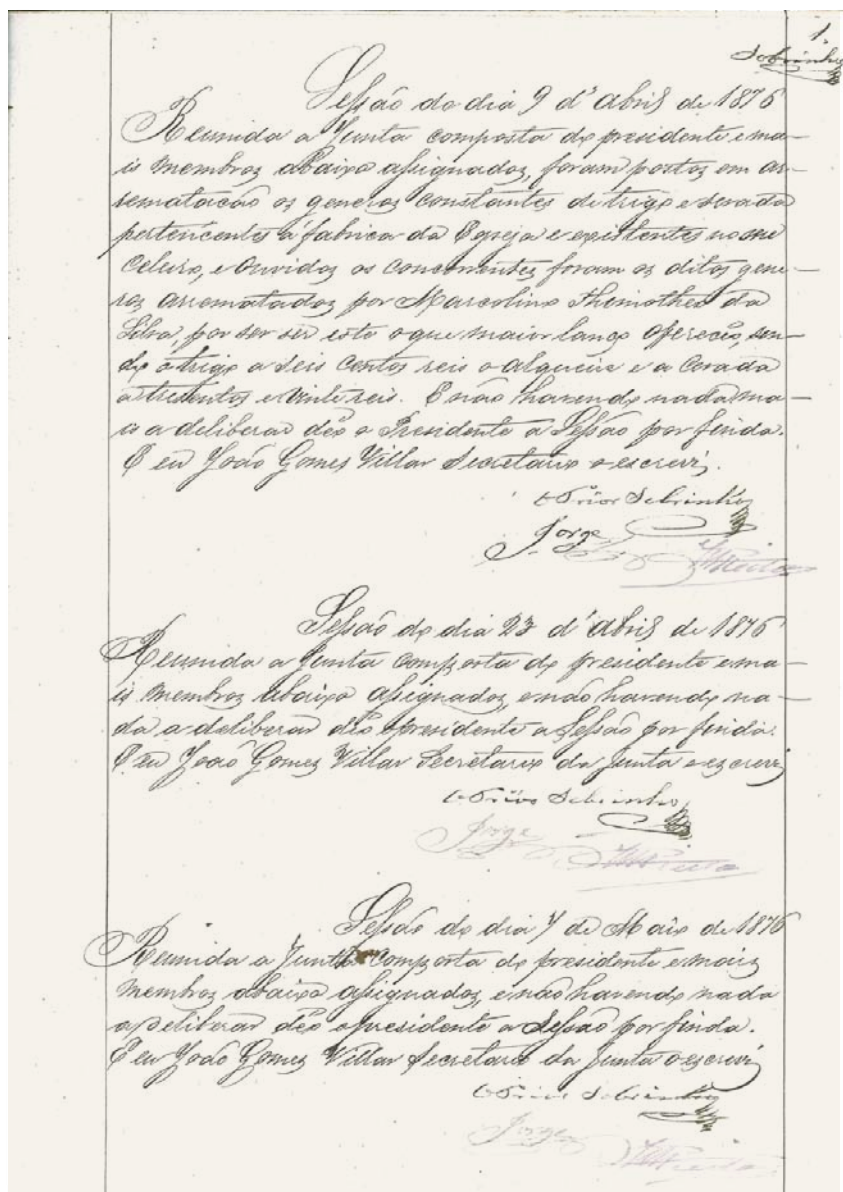 1.
Sobrinho
Sessão do dia 9 d'Abril de 1876
Reunida a Junta composta do presidente e ma-
is membros abaixo assignados, foram postos em ar-
rematacão os generos constantes de trigo e sevada
pertencentes á fabrica da Egreja e existentes no seu
Celeiro, e ouvidos os concorrentes foram os ditos gene-
ros arrematados por Marcolino Thimotheo da
Silva, por ser ser este o que maior lanço offereceo, sen-
do o trigo a seis centos reis o alqueire e a cevada
a trezentos e vinte reis. E não havendo nada ma-
is a deliberar dêo o Presidente a Sessão por finda.
E eu João Gomes Villar Secretario o escrevi.
O Prior Sobrinho
Jorge
Sessão do dia 23 d'Abril de 1876
Reunida a Junta composta do presidente e ma-
is membros abaixo assignados, e não havendo na-
da a deliberar dêo o presidente a Sessão por finda.
E eu João Gomes Villar Secretario da Junta o escrevi
O Prior Sobrinho
Jorge
Sessão do dia 7 de Maio de 1876
Reunida a Junta composta do presidente e mais
membros abaixo assignados, e não havendo nada
a deliberar dêo o presidente a Sessão por finda.
E eu João Gomes Villar Secretario da Junta o escrevi
O Prior Sobrinho
Jorge